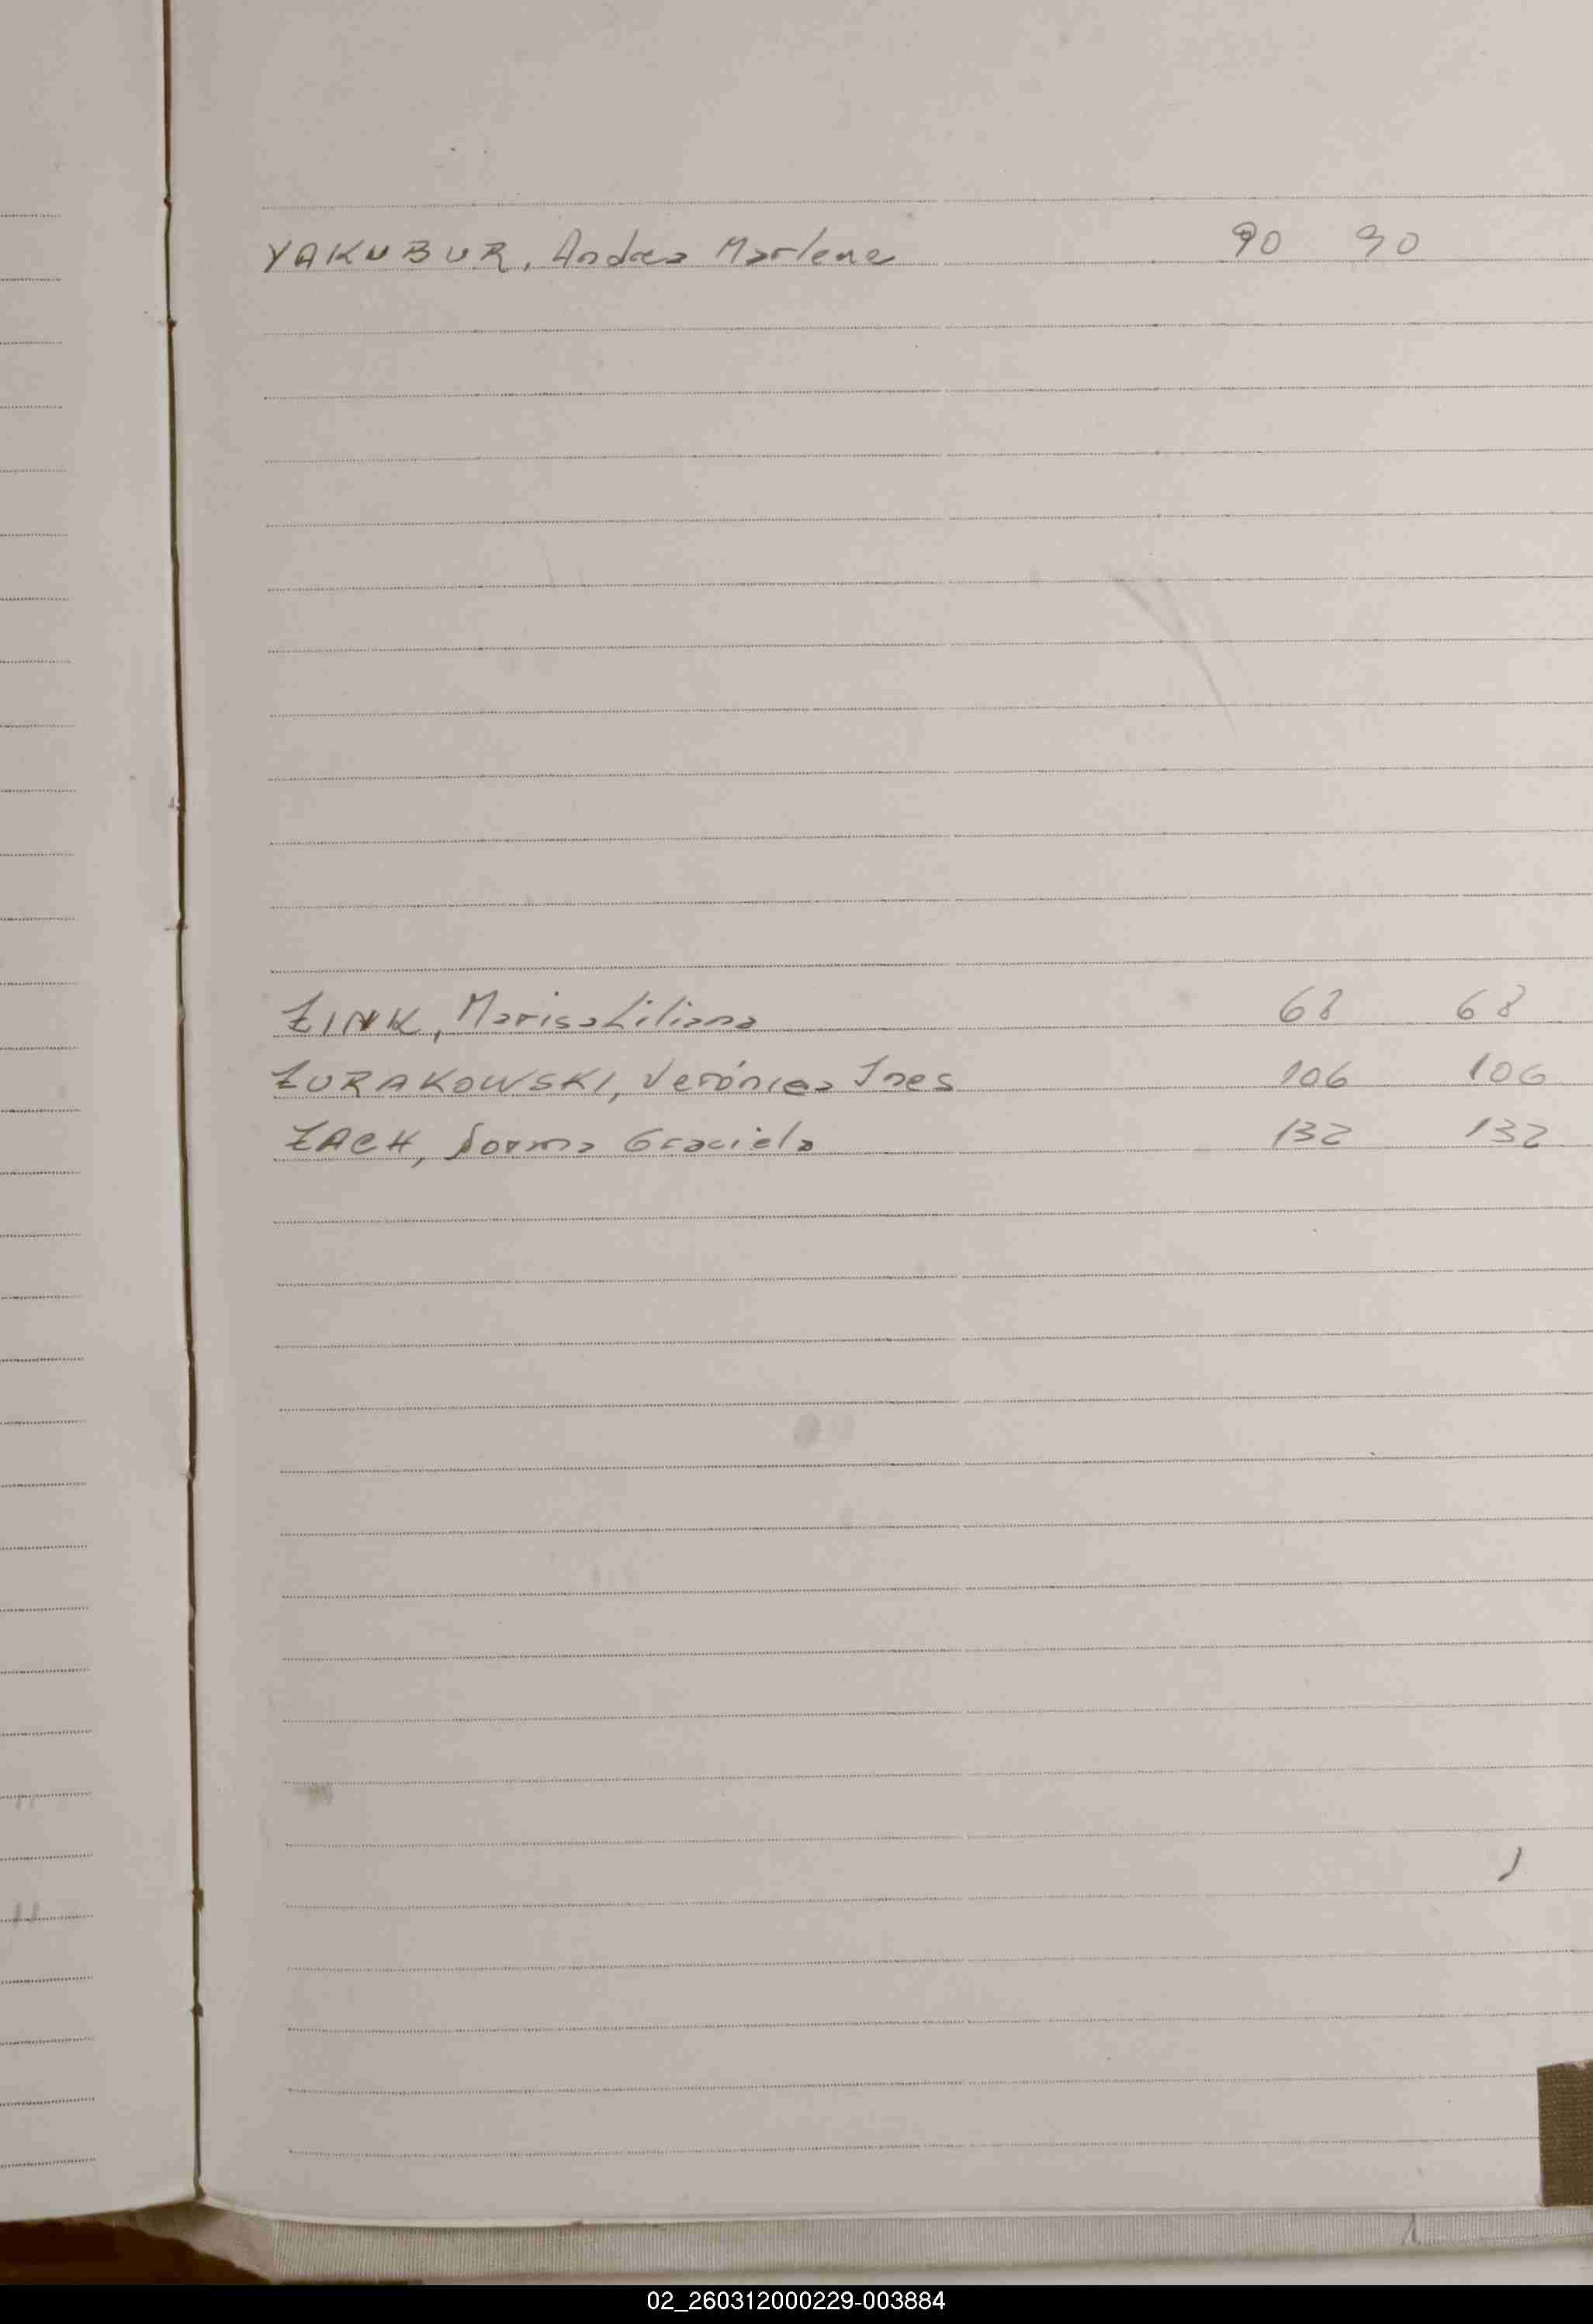 YAKUBUR, Andrea Marlene 90 90
ZINK, Marisa Liliana 68 68
ZURAKOWSKI, Verónica Ines 106 106
ZACH, Norma Graciela 132 132
02_260312000229-003884